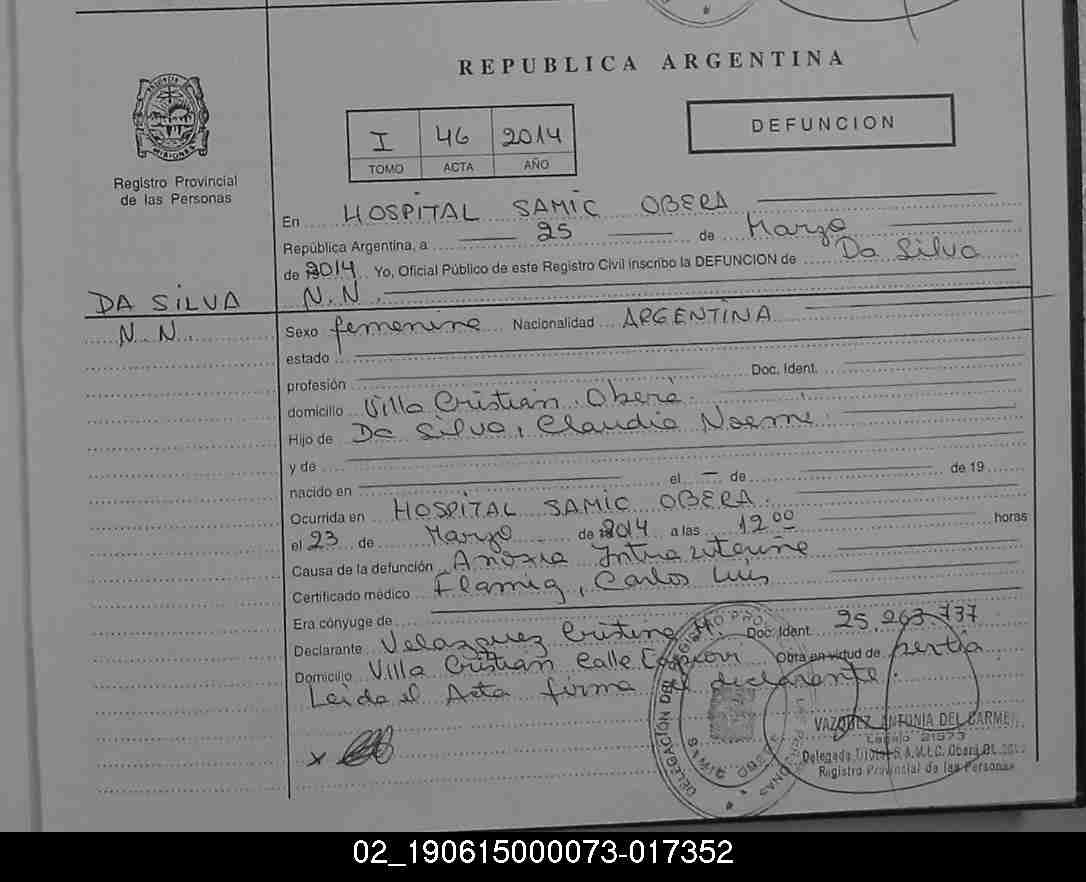 REPUBLICA ARGENTINA
I 46 2014
TOMO ACTA AÑO
DEFUNCION
Registro Provincial
de las Personas
En HOSPITAL SAMIC OBERA
República Argentina, a 25 de Marzo
de 2014 Yo, Oficial Público de este Registro Civil inscribo la DEFUNCION de Da Silva
N.N.
DA SILVA
N.N.
Sexo femenino Nacionalidad ARGENTINA
estado
profesión Doc. Ident.
domicilio Villa Cristian Oberá
Hijo de Da Silva, Claudia Noemi
y de
nacido en el — de de 19
Ocurrida en HOSPITAL SAMIC OBERA.
el 23 de Marzo de 2014 a las 12 00 horas
Causa de la defunción Anoxia Intrauterine
Certificado médico Flamig, Carlos Luis
Era cónyuge de
Declarante Velazquez Cristina M. Doc. Ident. 25.263.737
Domicilio Villa Cristian Calle Obra en virtud de
Leida el Acta firma el declarante.
x
DELEGACIÓN DEL REGISTRO PRO
LAS PERSONAS
SAMIC OBERA
VAZQUEZ ANTONIA DEL CARMEN
Legajo 21973
Delegada Titular S.A.M.I.C. Oberá
Registro Provincial de las Personas
02_190615000073-017352